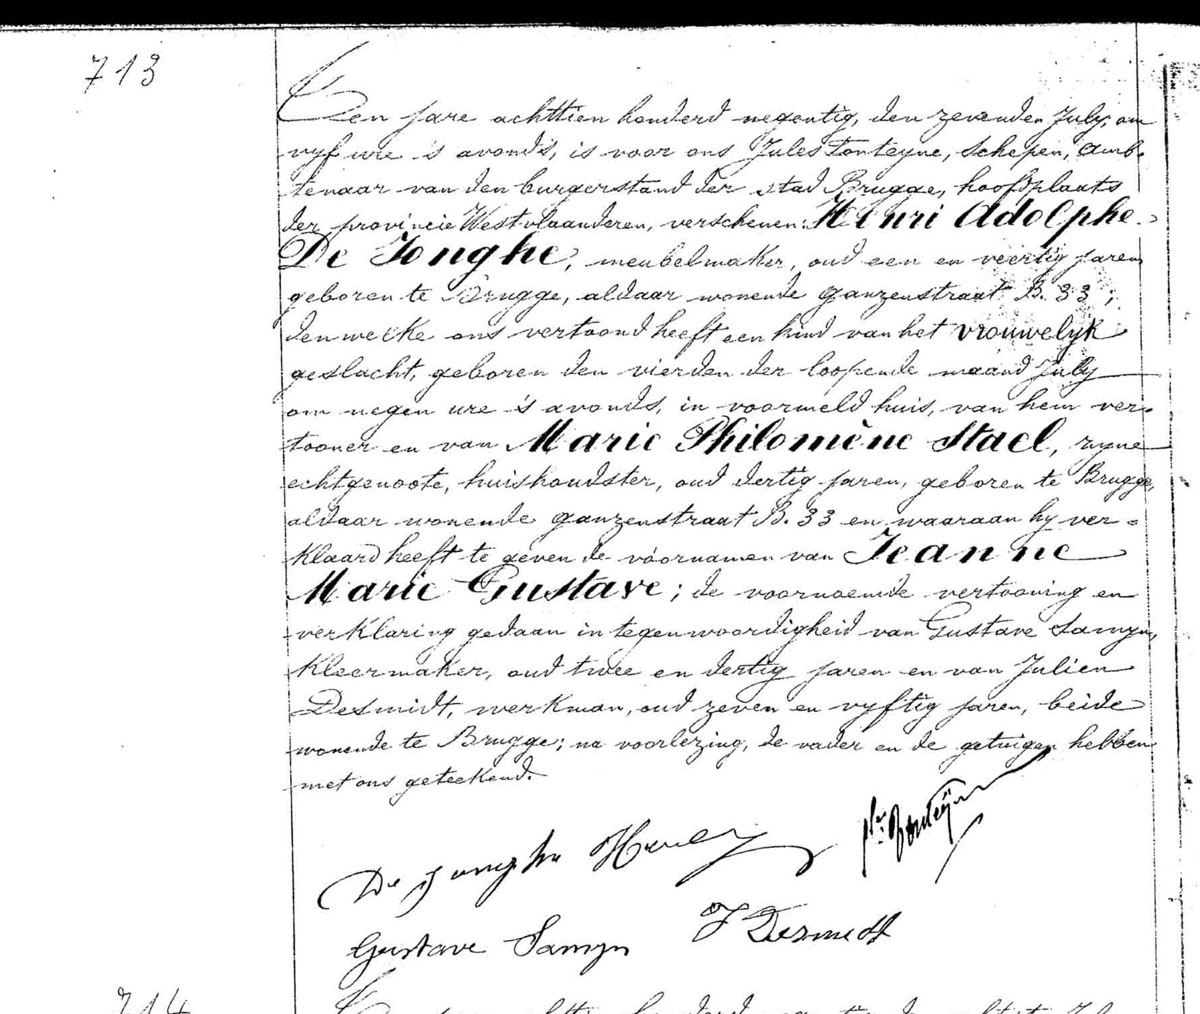 713
Den jare achttien honderd negentig, den zevenden July, om
vyf ure 's avonds, is voor ons Jules Fonteyne, schepen, Amb-
tenaar van den burgerstand der stad Brugge, hoofdplaats
der provincie Westvlaanderen, verschenen: Henri Adolphe
De Jonghe, meubelmaker, oud een en veertig jaren
geboren te Brugge, aldaar wonende ganzenstraat B. 33;
denwelke ons vertoond heeft een kind van het vrouwelyk
geslacht, geboren den vierden der loopende maand July
om negen ure 's avonds, in voormeld huis, van hem ver-
tooner en van Marie Philomène Stael, zyne
echtgenoote, huishoudster, oud dertig jaren, geboren te Brugge,
aldaar wonende ganzenstraat B. 33 en waaraan hy ver-
klaard heeft te geven de voornamen van Jeanne
Marie Gustave; de voornoemde vertooning en
verklaring gedaan in tegenwoordigheid van Gustave Samyn,
kleermaker, oud twee en dertig jaren en van Julien
Desmidt, werkman, oud zeven en vyftig jaren, beide
wonende te Brugge; na voorlezing, de vader en de getuigen hebben
met ons geteekend.
De Jonghe Henri
Gustave Samyn J Desmedt
714